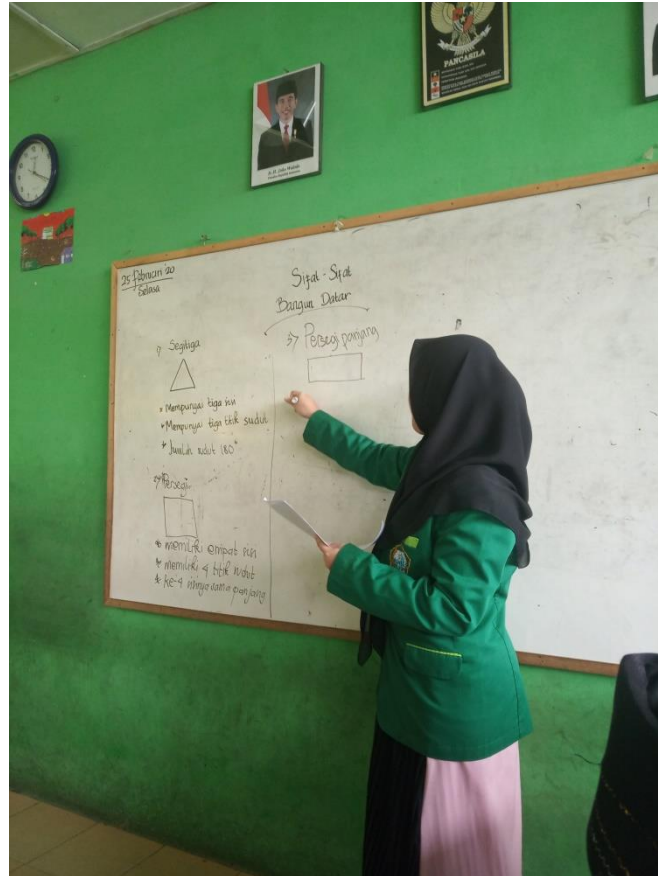 PANCASILA
Ir. H. Joko Widodo
25 februari '20
Selasa
Sifat - Sifat
Bangun Datar
Segitiga
* Mempunyai tiga sisi
* Mempunyai tiga titik sudut
* Jumlah sudut 180°
2) Persegi
* memiliki empat sisi
* memiliki 4 titik sudut
* ke-4 sisinya sama panjang
3) Persegi panjang